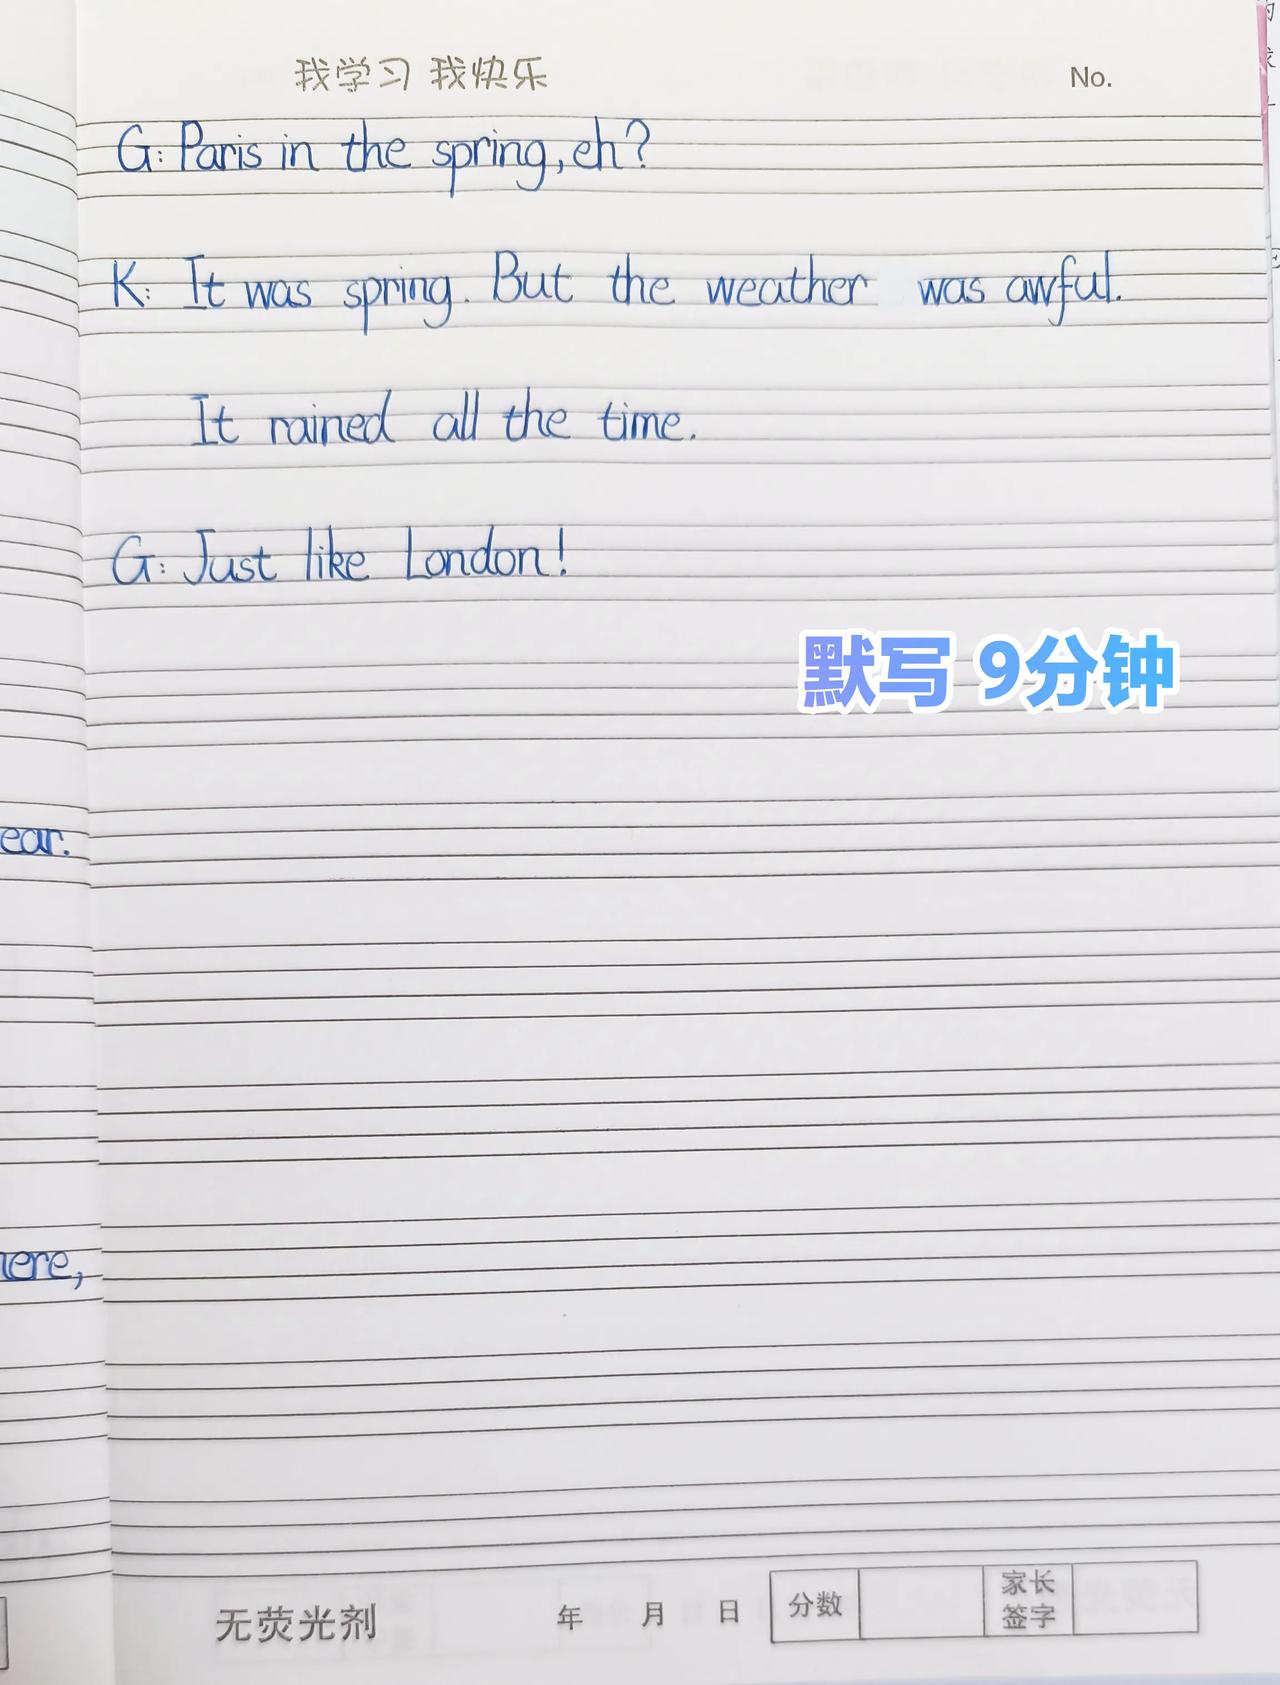 我学习 我快乐
No.
G: Paris in the spring, eh?
K: It was spring. But the weather was awful.
It rained all the time.
G: Just like London!
默写 9分钟
ear.
here,
无荧光剂
年 月 日
分数
家长
签字